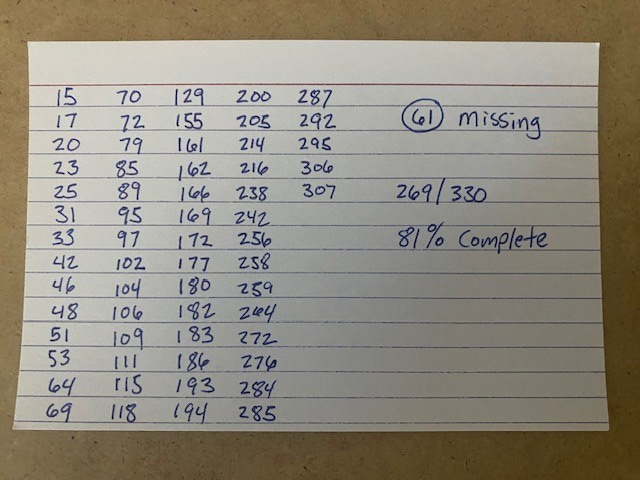 15 70 129 200 287
17 72 155 205 292
20 79 161 214 295
23 85 162 216 306
25 89 166 238 307
31 95 169 242
33 97 172 256
42 102 177 258
46 104 180 259
48 106 182 264
51 109 183 272
53 111 186 276
64 115 193 284
69 118 194 285
61 missing
269/330
81% Complete